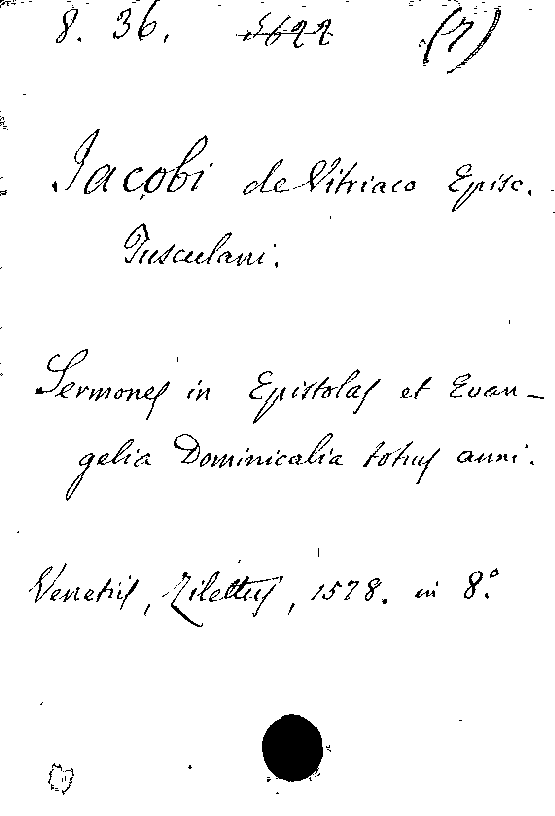 8. 36. 5622 (7)
Jacobi de Vitriaco Episc.
Tusculani.
Sermones in Epistolas et Evan-
gelia Dominicalia totius anni.
Venetiis, Zilettus, 1578. in 8°